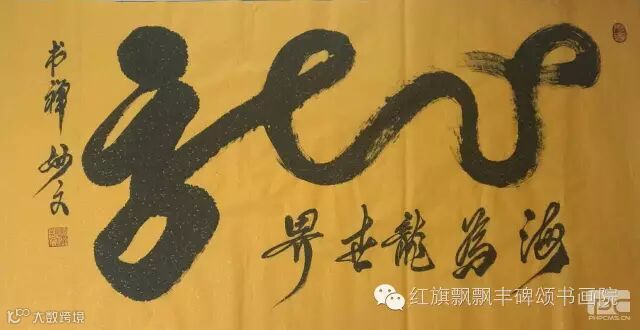 龍
海為龍世界
书禅
妙文
红旗飘飘丰碑颂书画院
大数跨境
PHPCMS.CN